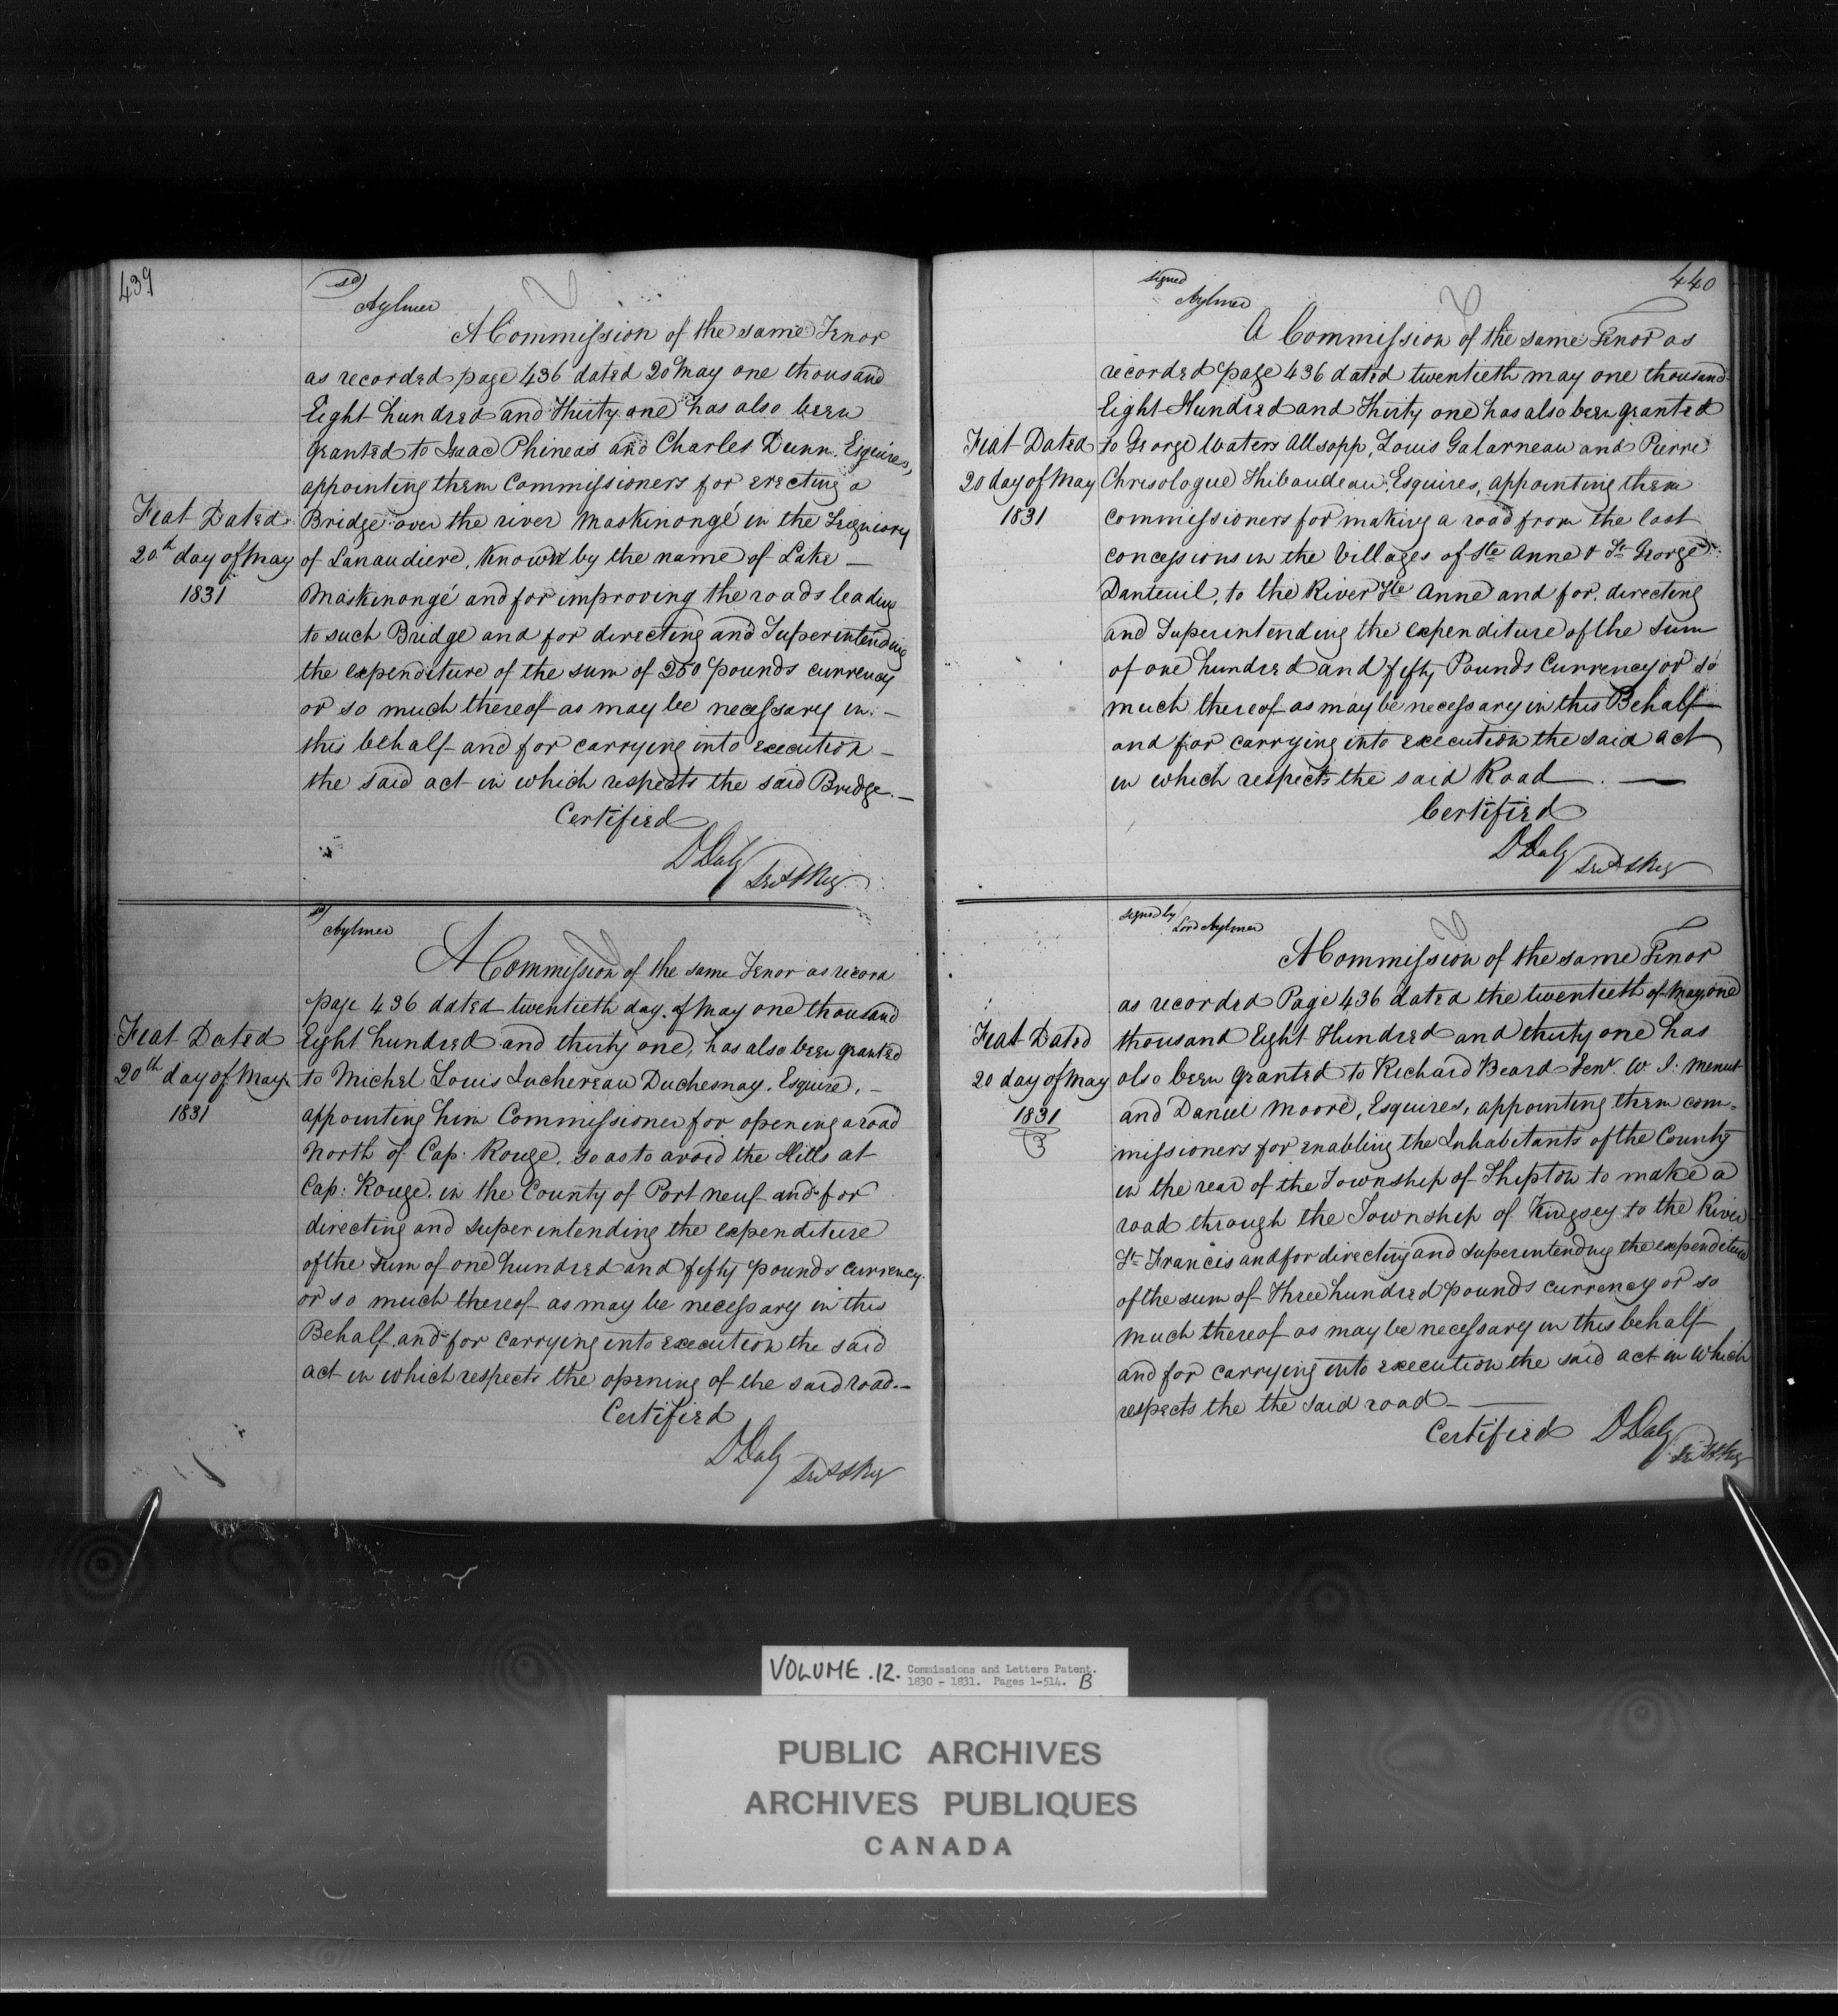 439
sd)
Aylmer
A Commission of the same Tenor
as recorded page 436 dated 20 May one thousand
Eight hundred and Thirty one has also been
granted to Isaac Phineas and Charles Dunn, Esquires,
appointing them Commissioners for erecting a
Fiat Dated
20th day of May
1831
Bridge over the river Maskinongé in the Seigniory
of Lanaudiere, Known by the name of Lake —
Maskinongé and for improving the roads leading
to such Bridge and for directing and Superintending
the expenditure of the sum of 250 pounds currency
or so much thereof as may be necessary in —
this behalf and for carrying into execution —
the said act in which respects the said Bridge. —
Certified
D Daly
Sec & Reg
sd)
Aylmer
A Commission of the same Tenor as record
page 436 dated twentieth day of May one thousand
Fiat Dated
20th day of May
1831
Eight hundred and thirty one, has also been granted
to Michel Louis Juchereau Duchesnay, Esquire, —
appointing him Commissioner for opening a road
North of Cap: Rouge, so as to avoid the Hills at
Cap: Rouge, in the County of Port neuf and for
directing and superintending the expenditure
of the sum of one hundred and fifty pounds currency
or so much thereof as may be necessary in this
Behalf and for carrying into execution the said
act in which respects the opening of the said road. —
Certified
D Daly
Sec & Reg
440
signed
Aylmer
A Commission of the same Tenor as
recorded page 436 dated twentieth may one thousand
Eight Hundred and Thirty one has also been granted
Fiat Dated
20 day of May
1831
to George Waters Allsopp, Louis Galarneau and Pierre
Chrisologue Thibaudeau, Esquires, appointing them
commissioners for making a road from the last
concessions in the Villages of Ste Anne & St George
Danteuil, to the River Ste Anne and for directing
and Superintending the expenditure of the sum
of one hundred and fifty Pounds Currency or so
much thereof as may be necessary in this Behalf
and for carrying into execution the said act
in which respects the said Road . —
Certified
D Daly
Sec & Reg
signed by
Lord Aylmer
A Commission of the same Tenor
as recorded Page 436 dated the twentieth of May one
Fiat Dated
20 day of May
1831
thousand Eight Hundred and thirty one has
also been granted to Richard Beard Senr. W. J. Menut
and Daniel Moore, Esquires, appointing them com-
missioners for enabling the Inhabitants of the County
in the rear of the Township of Shipton to make a
road through the Township of Kingsey to the River
St Francis and for directing and superintending the expenditure
of the sum of Three hundred pounds currency or so
much thereof as may be necessary in this behalf
and for carrying into execution the said act in which
respects the the said road —
Certified D Daly
Sec & Reg
VOLUME .12. Commissions and Letters Patent.
1830 - 1831. Pages 1-514. B
PUBLIC ARCHIVES
ARCHIVES PUBLIQUES
CANADA